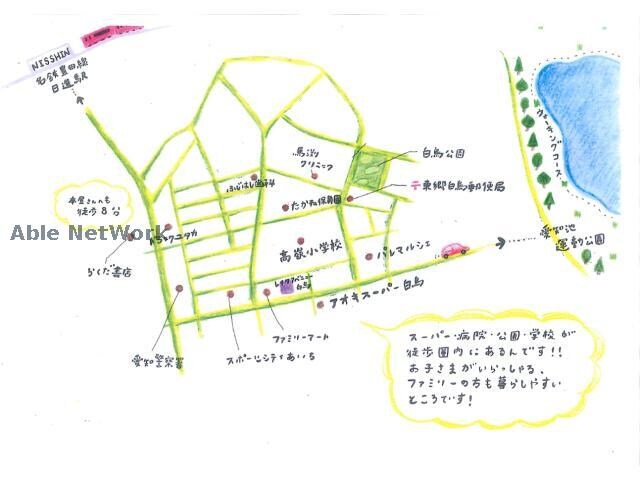 NISSHIN
名鉄豊田線
日進駅
ウォーキングコース
馬渕
クリニック
白鳥公園
ふじはし歯科
〒東郷白鳥郵便局
本屋さんへも
徒歩8分
たかね保育園
Able NetWork
ドラッグユタカ
高嶺小学校
パレマルシェ
愛知池
運動公園
らくだ書店
白鳥
アオキスーパー白鳥
ファミリーマート
愛知警察署
スポーツシティあいち
スーパー・病院・公園・学校が
徒歩圏内にあるんです!!
お子さまがいらっしゃる、
ファミリーの方も暮らしやすい
ところです!